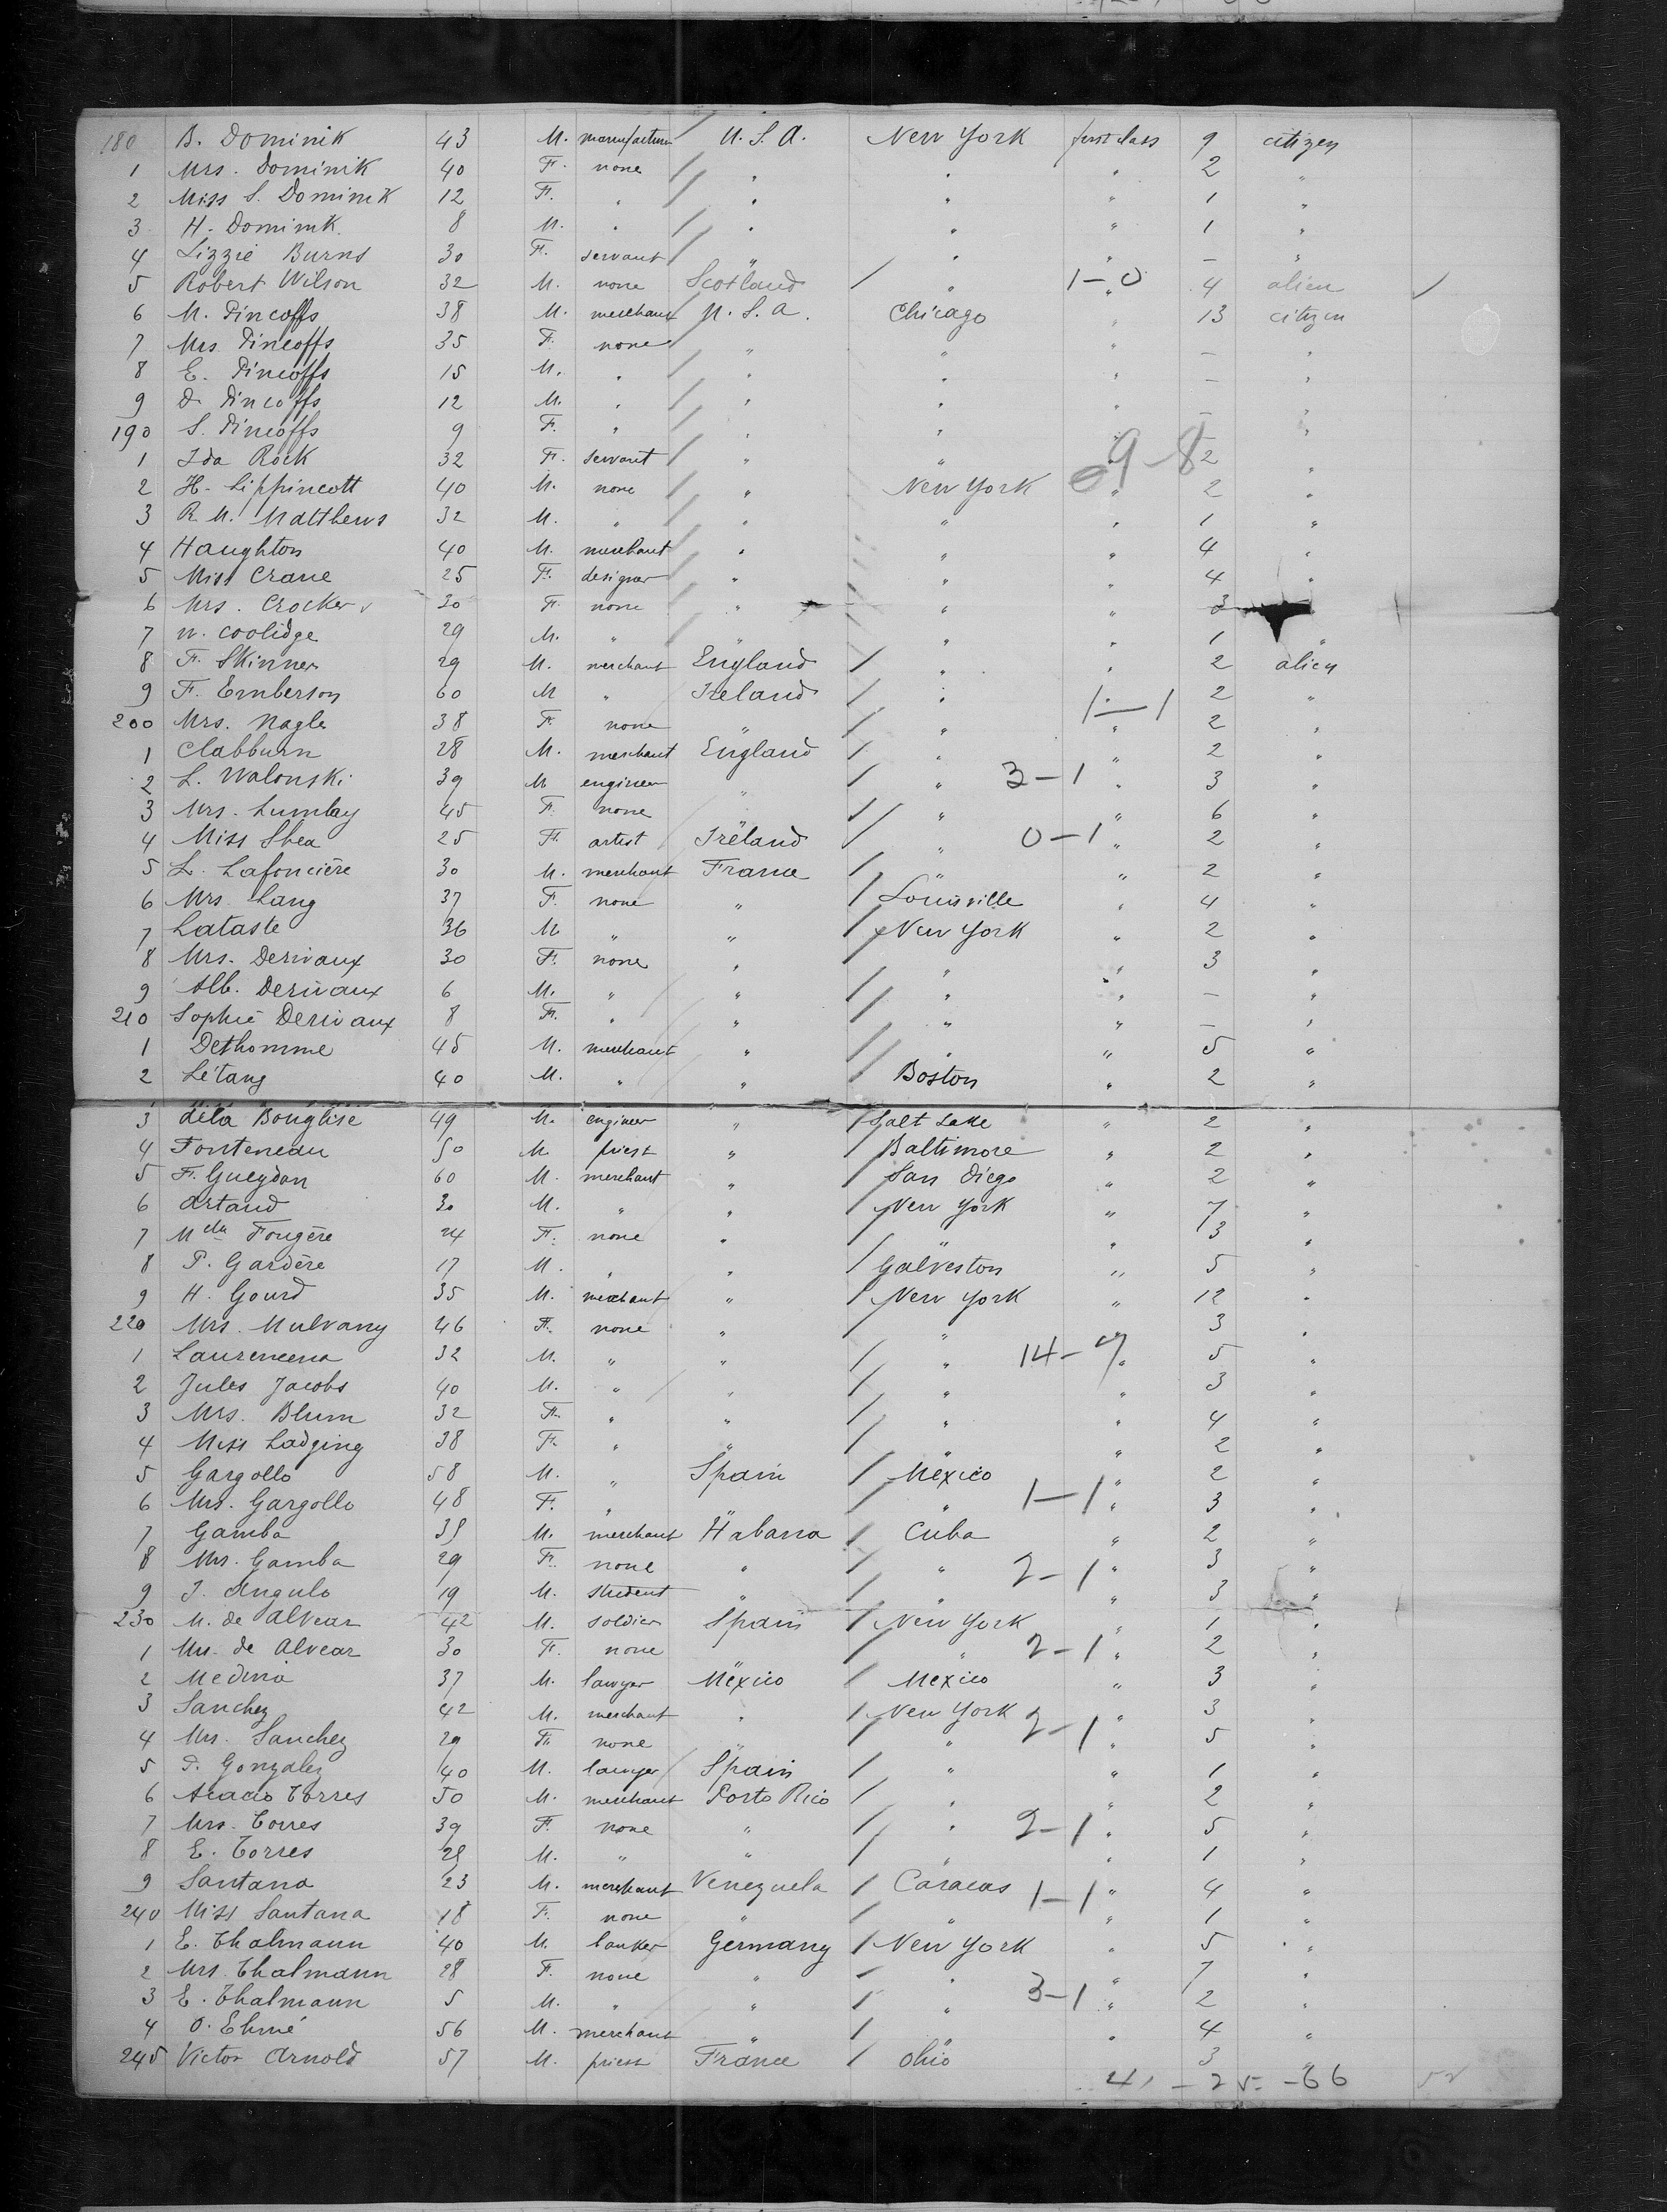 180 B. Dominik 43 M. manufacturer U.S.A. New York first class 9 citizen
1 Mrs. Dominik 40 F. none " " " 2 "
2 Miss S. Dominik 12 F. " " " " 1 "
3 H. Dominik. 8 M. " " " " 1 "
4 Lizzie Burns 30 F. servant " " " – "
5 Robert Wilson 32 M. none Scotland " 1–0 " 4 alien
6 M. Pincoffs 38 M. merchant U.S.A. Chicago " 13 citizen
7 Mrs. Pincoffs 35 F. none " " " – "
8 E. Pincoffs 15 M. " " " " – "
9 D. Pincoffs 12 M. " " " " – "
190 S. Pincoffs 9 F. " " " " – "
1 Ida Rock 32 F. servant " " 9–8 2 "
2 H. Lippincott 40 M. none " New York " 2 "
3 R.M. Matthews 32 M. " " " " 1 "
4 Haughton 40 M. merchant " " " 4 "
5 Miss Crane 25 F. designer " " " 4 "
6 Mrs. Crocker 30 F. none " " " 3
7 N. Coolidge 29 M. " " " " 1 "
8 F. Skinner 29 M. merchant England " " 2 alien
9 F. Emberson 60 M " Ireland " " 2 "
200 Mrs. Nagle 38 F. none " " 1–1 " 2 "
1 Clabburn 28 M. merchant England " " 2 "
2 L. Walonski 39 M engineer " " 3–1 " 3 "
3 Mrs. Lumbay 45 F. none " " " 6 "
4 Miss Shea 25 F. artist Ireland " 0–1 " 2 "
5 L. Lafoncière 30 M. merchant France " " 2 "
6 Mrs. Lang 37 F. none " Louisville " 4 "
7 Lataste 36 M " " New York " 2 "
8 Mrs. Derivaux 30 F. none " " " 3 "
9 Alb. Derivaux 6 M. " " " " – "
210 Sophie Derivaux 8 F. " " " " – "
1 Dethomme 45 M. merchant " " " 5 "
2 Létang 40 M. " " Boston " 2 "
3 dela Bouglise 49 M. engineer " Salt Lake " 2 "
4 Fonteneau 50 M. priest " Baltimore " 2 "
5 F. Gueydan 60 M. merchant " San Diego " 2 "
6 Artaud 30 M. " " New York " 7 "
7 Melle Fougère 24 F. none " " " 3 "
8 P. Gardère 17 M. " " Galveston " 5 "
9 H. Gourd 35 M. merchant " New York " 12 "
220 Mrs. Mulvany 46 F. none " " " 3 "
1 32 M. " " " 14–7 " 5 "
2 Jules Jacobs 40 M. " " " " 3 "
3 Mrs. Blum 32 F. " " " " 4 "
4 Miss Ladging 38 F. " " " " 2 "
5 Gargollo 58 M. " Spain Mexico " 2 "
6 Mrs. Gargollo 48 F. " " " 1–1 " 3 "
7 Gamba 39 M. merchant Habana Cuba " 2 "
8 Mrs. Gamba 29 F. none " " 2–1 " 3 "
9 J. Angulo 19 M. student " " " 3 "
230 M. de Alvear 42 M. soldier Spain New York " 1 "
1 Mrs. de Alvear 30 F. none " " 2–1 " 2 "
2 Medina 37 M. lawyer Mexico Mexico " 3 "
3 Sanchez 42 M. merchant " New York " 3 "
4 Mrs. Sanchez 29 F. none " " 2–1 " 5 "
5 P. Gonzalez 40 M. lawyer Spain " " 1 "
6 Acacio Torres 50 M. merchant Porto Rico " " 2 "
7 Mrs. Torres 39 F. none " " 2–1 " 5 "
8 E. Torres 29 M. " " " " 1 "
9 Santana 23 M. merchant Venezuela Caracas " 4 "
240 Miss Santana 18 F. none " " 1–1 " 1 "
1 E. Thalmann 40 M. banker Germany New York " 5 "
2 Mrs. Thalmann 28 F. none " " " 7 "
3 E. Thalmann 5 M. " " " 3–1 " 2 "
4 O. Ehmé 56 M. merchant " " " 4 "
245 Victor Arnold 57 M. priest France Ohio 3 "
41 – 25 – 66